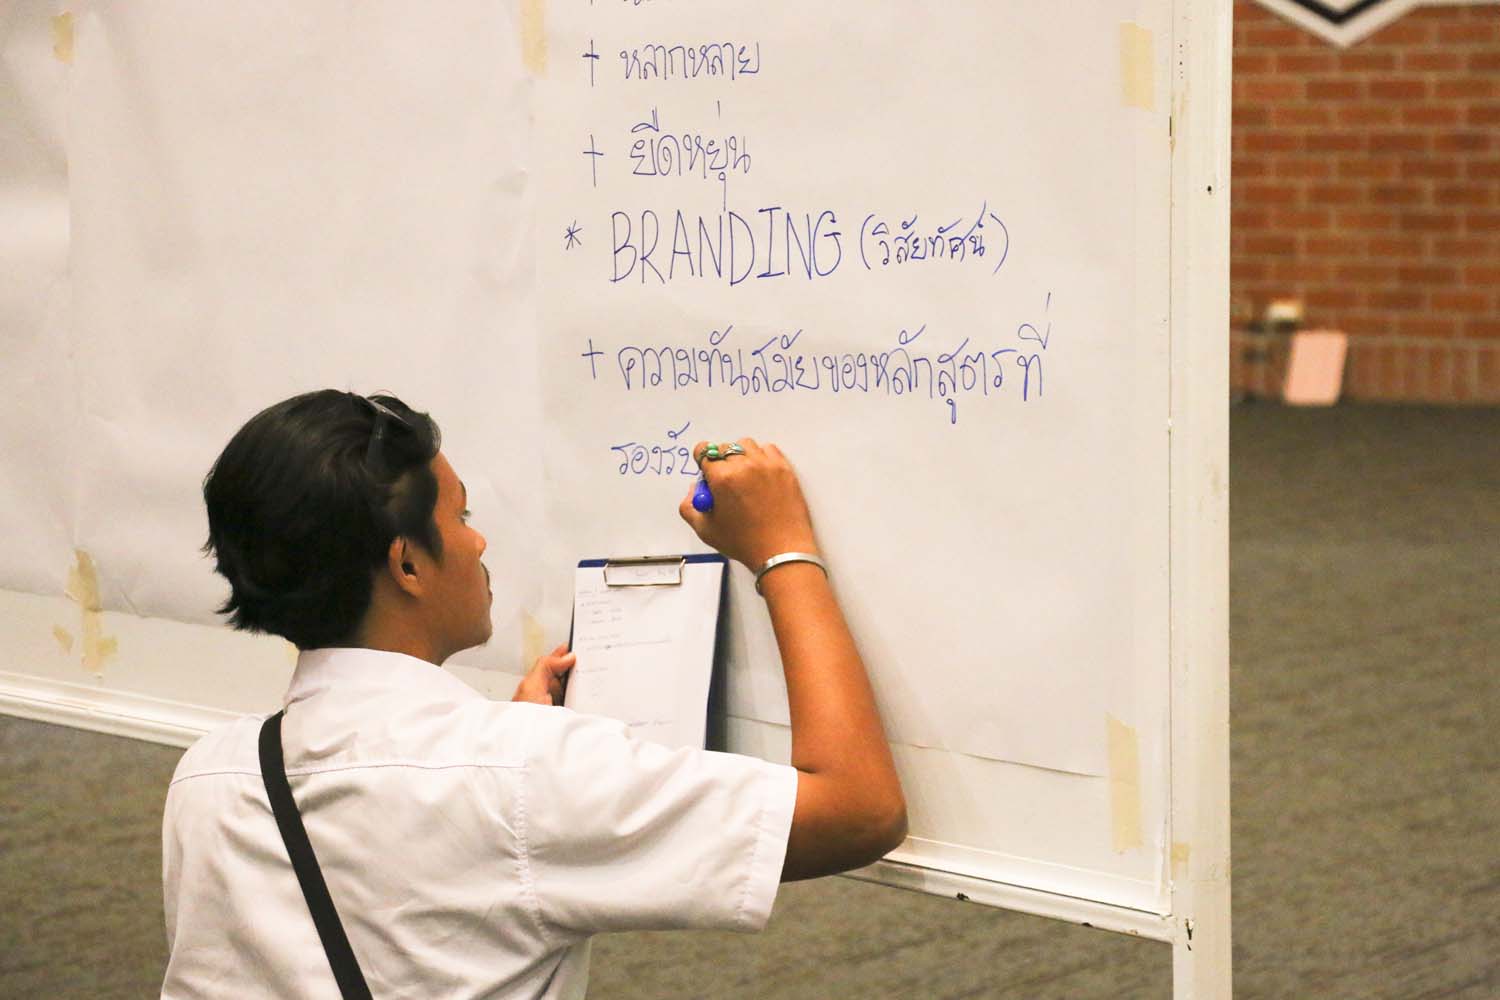 + หลากหลาย
+ ยืดหยุ่น
* BRANDING (วิสัยทัศน์)
+ ความทันสมัยของหลักสูตร ที่
รองรับ